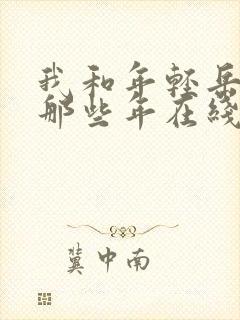 我和年轻岳
那些年在线
冀中南